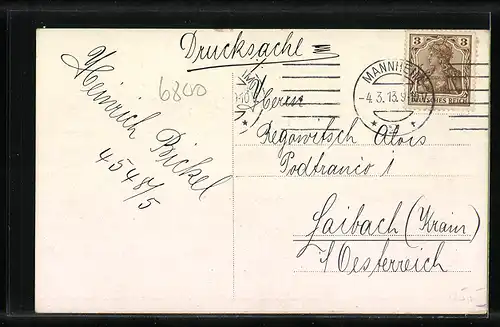 Drucksache
6800
Heinrich Bickel
4548/5
3
DEUTSCHES REICH
MANNHEIM
-4.3.13.9
Herrn
Regowitsch Alois
Podtranco 1
Laibach (Krain)
i/Oesterreich